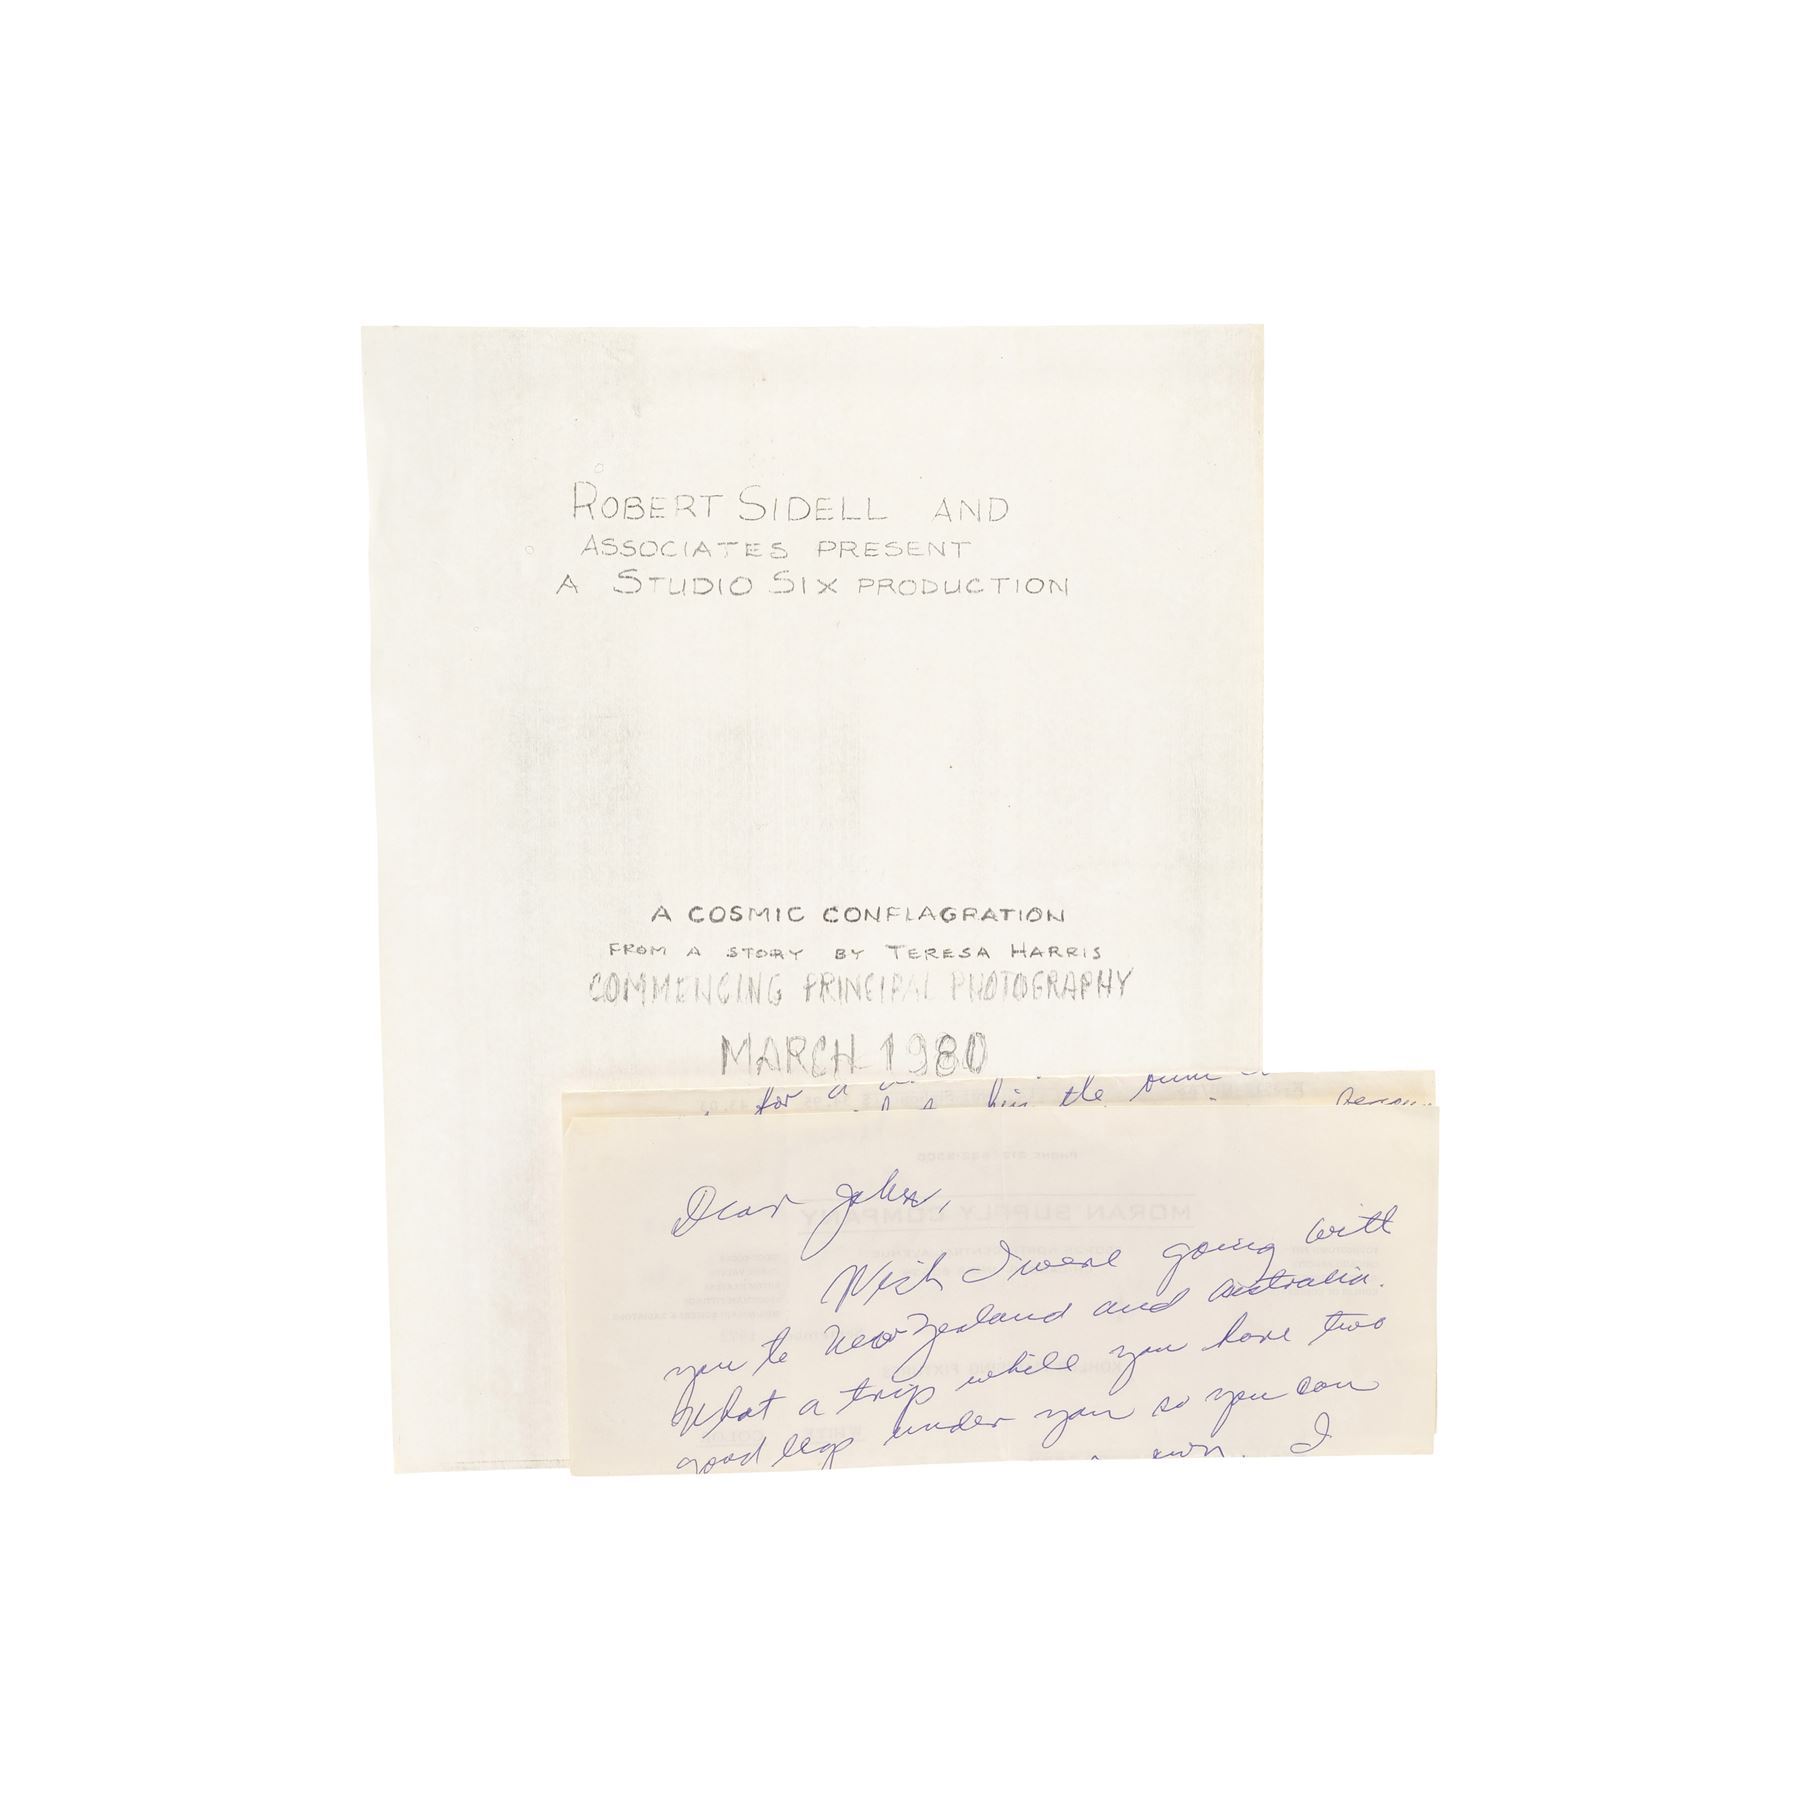 ROBERT SIDELL AND
ASSOCIATES PRESENT
A STUDIO SIX PRODUCTION
A COSMIC CONFLAGRATION
FROM A STORY BY TERESA HARRIS
COMMENCING PRINCIPAL PHOTOGRAPHY
MARCH 1980
for a
the
Dear John,
Wish I were going with
you to New Zealand and Australia.
What a trip while you have two
good legs under you so you can
own. I
MORAN SUPPLY COMPANY